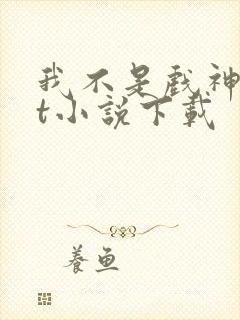 我不是戲神
t小說下載
養魚